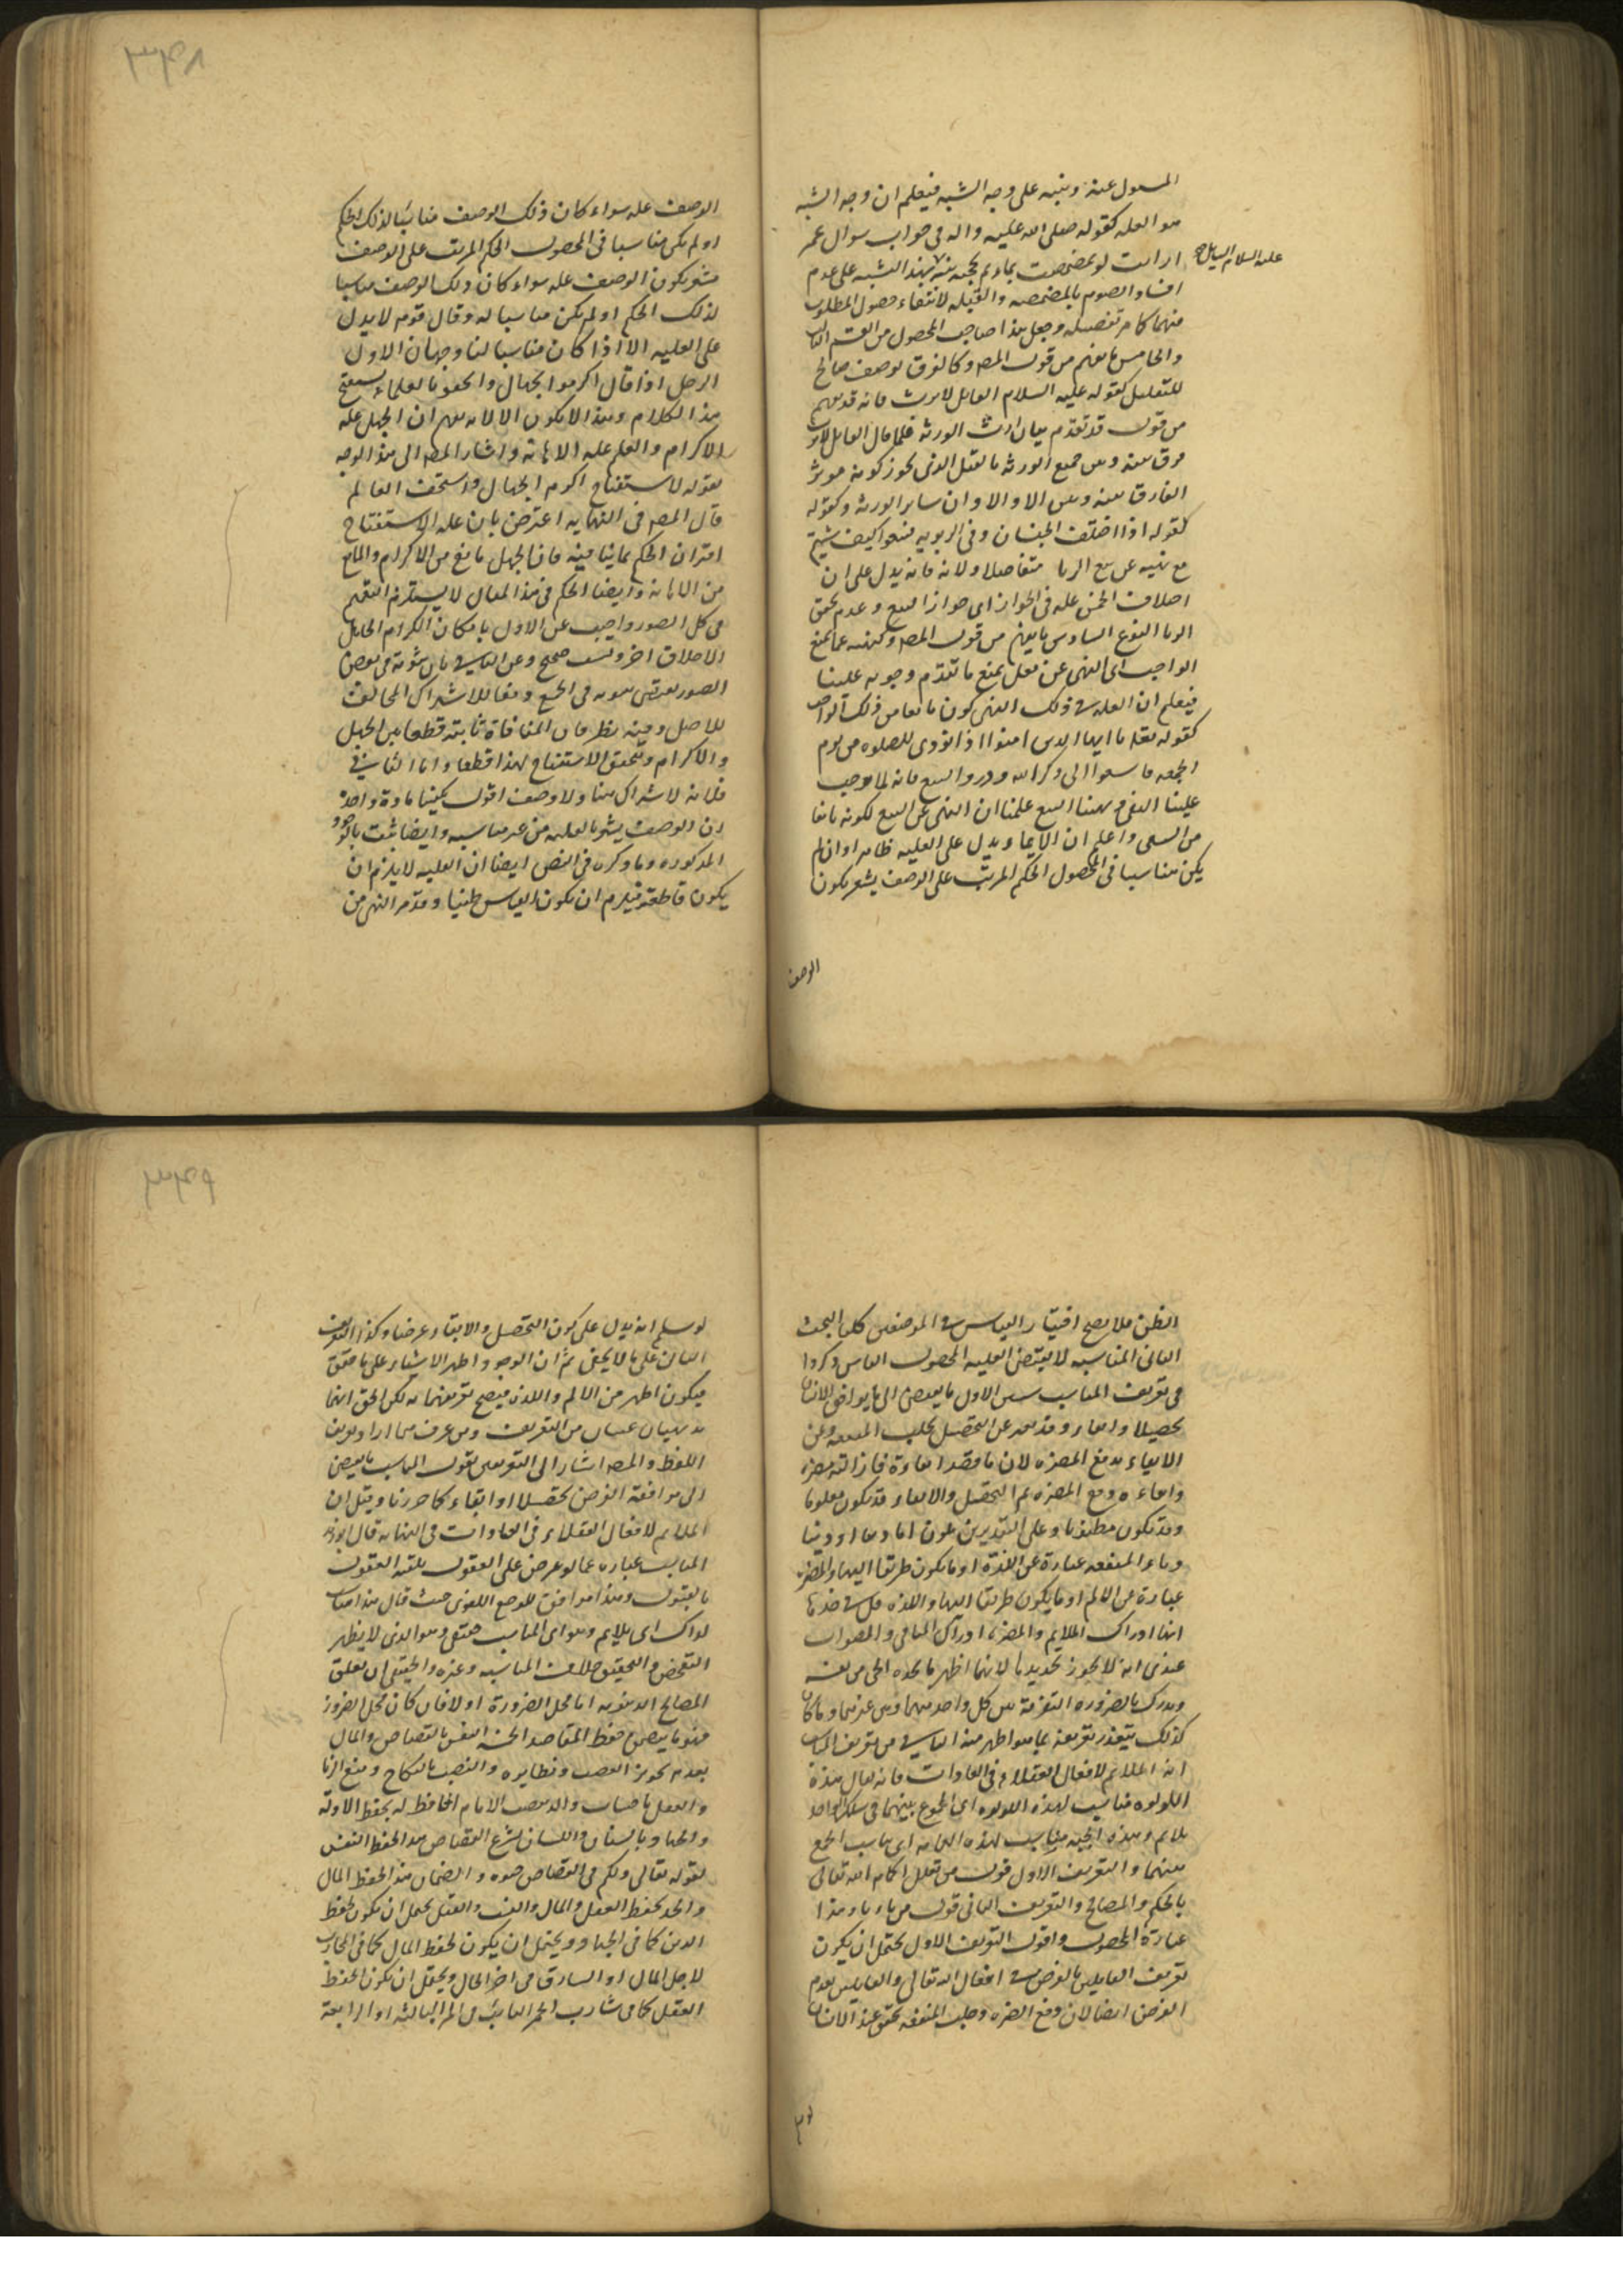 ٣٤٨
المسول عنه وينبه على وجه الشبه فيعلم ان وجه الشبه
هو العله كقوله صلى الله عليه واله فى جواب سوال عمر
ارايت لو تمضمضت بماء ثم مججته نبه بهذا الشبه على عدم
عليه السلام السايل
افساد الصوم بالمضمضه والقبله لانتفاء حصول المطلوب
منهما كما مر تفصيله وجعل هذا صاحب المحصول من القسم الثالث
والخامس ما يفهم من قول المص وكالفرق بوصف صالح
للتعليل كقوله عليه السلام القاتل لا يرث فانه قد يفهم
من قول قد تقدم بيان ارث الورثه فلما قال القاتل لا يرث
فرق بينه وبين جميع الورثه بالقتل الذى يجوز كونه موثر
الفارق بينه وبين سائر الورثه وكقوله
كقوله اذا اختلف الجنسان وفى الربويه فبيعوا كيف شيتم
مع نهيه عن بيع الربا متفاضلا فانه يدل على ان
اختلاف الجنس عله فى الجواز اى جواز البيع وعدم تحقق
الربا النوع السادس ما يفهم من قول المص وكنهيه عما يمنع
الواجب اى النهى عن فعل يمنع ما تقدم وجوبه علينا
فيعلم ان العله فى ذلك النهى كون مانعا من ذلك الواجب
كقوله تعالى يا ايها الذين امنوا اذا نودى للصلوه من يوم
الجمعه فاسعوا الى ذكر الله وذروا البيع فانه لما اوجب
علينا السعى ونهينا البيع علمنا ان النهى عن البيع لكونه مانعا
من السعى واعلم ان الايماء يدل على العليه ظاهرا وان لم
يكن مناسبا فى المحصول الحكم المرتب على الوصف يشعر بكون
الوصف
الوصف عله سواء كان ذلك الوصف مناسبا لذلك الحكم
او لم يكن مناسبا فى المحصول الحكم المرتب على الوصف
مشعر بكون الوصف عله سواء كان ذلك الوصف مناسبا
لذلك الحكم او لم يكن مناسبا له وقال قوم لا يدل
على العليه الا اذا كان مناسبا لنا وجهان الاول
الرجل اذا قال اكرموا الجهال واستخفوا بالعلماء يستقبح
هذا الكلام وهذا لا يكون الا لانه يفهم ان الجهل عله
للاكرام والعلم عله الاهانه واشار المص الى هذا الوجه
بقوله لاستقباح اكرم الجهال واستخف العالم
قال المص فى النهايه اعترض بان عله الاستقباح
اقتران الحكم بما ينافيه فان الجهل مانع من الاكرام والعلم مانع
من الاهانه وايضا الحكم فى هذا المثال لا يستلزم التعميم
فى كل الصور واجيب عن الاول بامكان اكرام الجاهل
صحيح وعن الثانى بان ثبوته فى بعض
الصور يقتضى ثبوته فى الجميع دفعا للاشتراك المخالف
للاصل وفيه نظر فان المنافاة ثابته قطعا بين الجهل
والاكرام وتحقق الاستقباح لهذا قطعا واما الثانى
فلانه لا اشتراك هنا ولا وصف اقول يكفينا مادة واحدة
ان الوصف يشعر بالعليه من غير مناسبه وايضا ثبت بالوجوه
المذكوره وما ذكره فى النص ايضا ان العليه لا يلزم ان
يكون قاطعة فيلزم ان يكون القياس ظنيا وقد مر النهى من
٣٤٩
الظن فلا يصح اختيار القياس فى الموضعين كليا البحث
الثانى المناسبه لا تقتضى العليه المحصول الناس ذكروا
فى تعريف المناسب شيئين الاول ما يفضى الى ما يوافق الانسان
تحصيلا وابقاء وقد يعبر عن التحصيل بجلب المنفعه وعن
الابقاء بدفع المضره لان ما قصد ابقاؤه فازالته مضره
وابقاءه دفع المضره ثم التحصيل والابقاء قد يكون معلوما
وقد يكون مظنونا وعلى التقديرين فاما دينا او دنيا
وما المنفعه عبارة عن اللذة او ما يكون طريقا اليها والمضره
عبارة عن الالم او ما يكون طريقا اليها واللذه قيل فى حدها
انها ادراك الملايم والمضره ادراك المنافى والصواب
عندى انه لا يجوز تحديدها لانهما اظهر ما يجده الحى من نفسه
ويدرك بالضروره التفرقة بين كل واحد منهما وبين غيرهما وما كان
كذلك يتعذر تعريفه بما هو اظهر منه الثانى من تعريف المناسب
انه الملائم لافعال العقلاء فى العادات فانه يقال هذه
اللولوه تناسب لهذه اللولوه اى الجمع بينهما فى سلك واحد
ملايم وهذه الجبه مناسب لهذه العمامه اى يناسب الجمع
بينهما والتعريف الاول قول من يعلل احكام الله تعالى
بالحكم والمصالح والتعريف الثانى قول من ياباه وهذا
عبارة المحصول واقول التعريف الاول يحتمل ان يكون
تعريف القايلين بالغرض فى افعال الله تعالى والقايلين بعدم
الغرض ايضا لان دفع المضره وجلب المنفعه تحقق عند الانسان
لو سلم
لو سلم انه يدل على كون التحصيل والابقاء غرضا وكذا التعريف
الثانى على ما لا يخفى ثم ان الوجود اظهر الاشياء على ما حقق
فيكون اظهر من الالم واللذه فيصح تعريفهما به لكن الحق انهما
بديهيان غنيان من التعريف ومن عرف فيهما اراد تعريف
اللفظ والمص اشار الى التعريفين بقوله المناسب ما يفضى
الى موافقة الغرض تحصيلا او ابقاء كما حررنا وقيل ان
الملايم لافعال العقلاء فى العادات فى النهايه قال ابو زيد
المناسب عباره عما لو عرض على العقول تلقته العقول
بالقبول وهذا موافق للوضع اللغوى حيث قال هذا مناسب
لذاك اى ملايم وهو اى المناسب حقيقى وهو الذى لا يظهر
التفحص والتحقيق خلاف المناسبه وغيره والحقيقى ان تعلق
المصالح الدنيويه اما محل الضرورة او لا فان كان محل الضرورة
فهو ما يتضمن حفظ المقاصد الخمسه النفس بالقصاص والمال
بعدم تجويز الغصب ونظايره والنسب بالنكاح ومنع الزنا
والعقل باجتناب والدين بنصب الامام الحافظ له بحفظ الادله
والجهاد بالسنان واللسان شرع القصاص هذا لحفظ النفس
لقوله تعالى ولكم فى القصاص حيوه والضمان هذا لحفظ المال
والحد لحفظ العقل والمال والنسب والقتل يحتمل ان يكون لحفظ
الدين كما فى الجهاد ويحتمل ان يكون لحفظ المال كما فى المحارب
لاجل المال او السارق فى اخر الحال ويحتمل ان يكون لحفظ
العقل كما فى شارب الخمر الثابت فى المره الثالثه او الرابعة